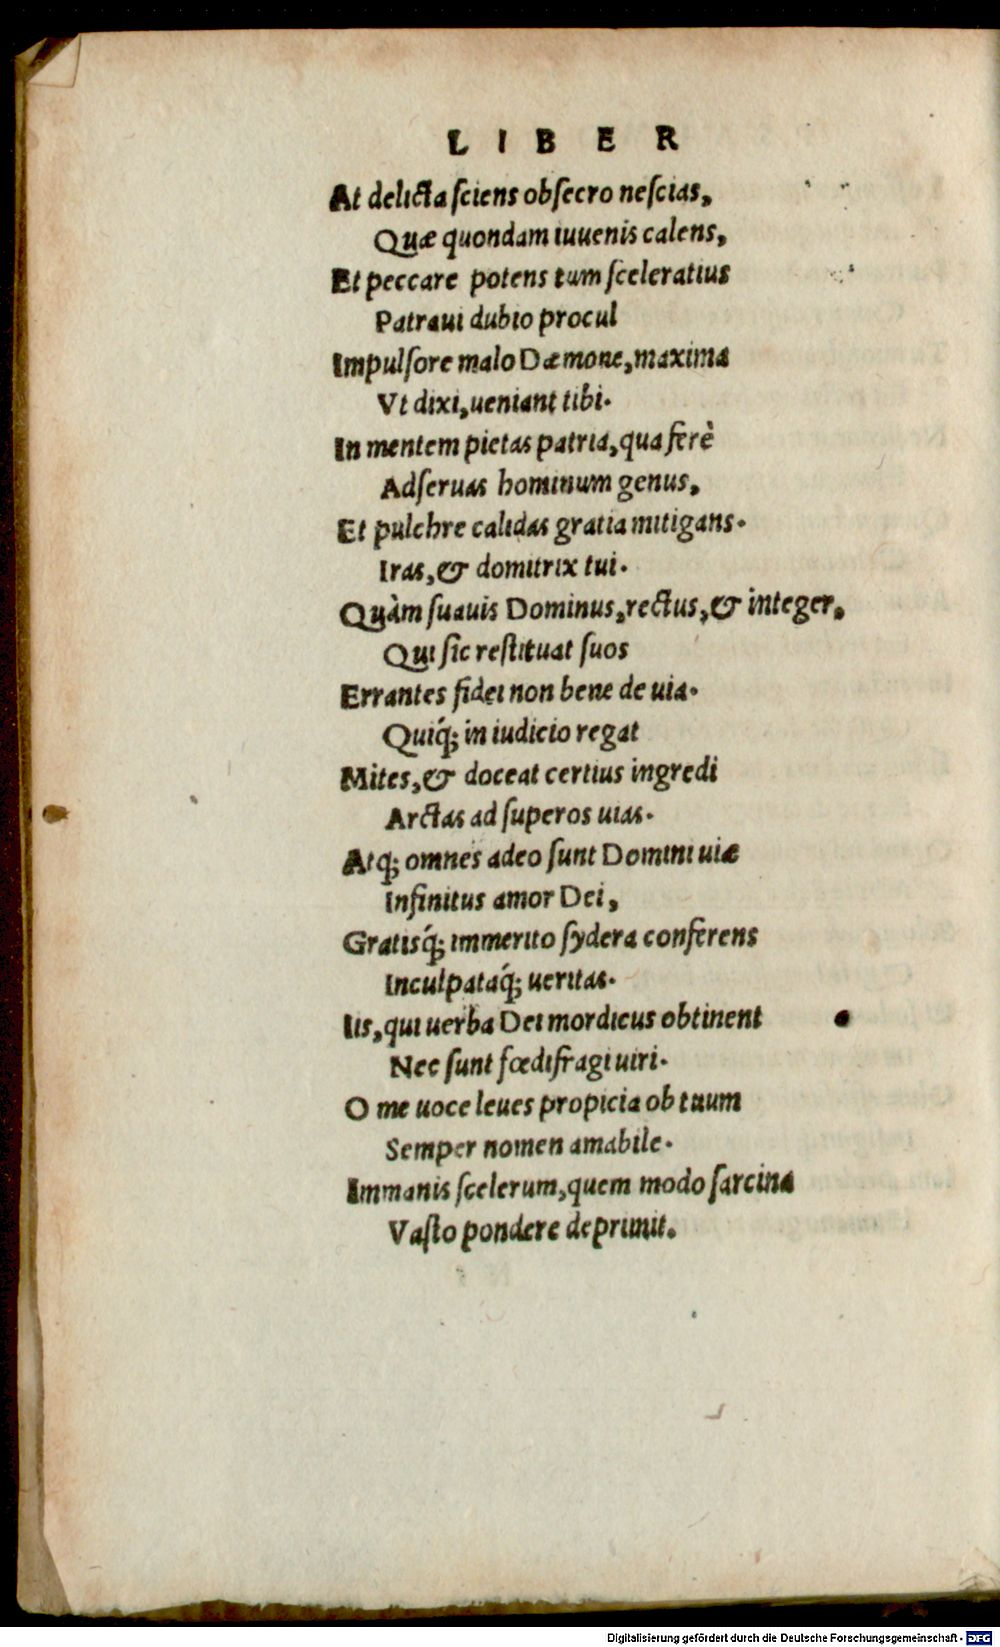 LIBER
At delicta ſciens obſecro neſcias,
Quæ quondam iuuenis calens,
Et peccare potens tum ſceleratius
Patraui dubio procul
Impulſore malo Dæmone, maxima
Vt dixi, ueniant tibi.
In mentem pietas patria, qua ferè
Adſeruas hominum genus,
Et pulchre calidas gratia mitigans.
Iras, & domitrix tui.
Quàm ſuauis Dominus, rectus, & integer,
Qui ſic reſtituat ſuos
Errantes fidei non bene de uia.
Quiq́; in iudicio regat
Mites, & doceat certius ingredi
Arctas ad ſuperos uias.
Atq; omnes adeo ſunt Domini uiæ
Infinitus amor Dei,
Gratisq́; immerito ſydera conferens
Inculpataq́; ueritas.
Iis, qui uerba Dei mordicus obtinent
Nec ſunt fœdifragi uiri.
O me uoce leues propicia ob tuum
Semper nomen amabile.
Immanis ſcelerum, quem modo ſarcina
Vaſto pondere deprimit.
Digitalisierung gefördert durch die Deutsche Forschungsgemeinschaft - DFG